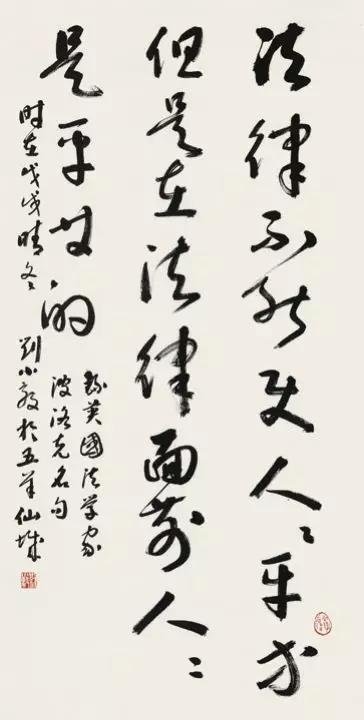 法律不能使人人平等
但是在法律面前人人
是平等的
录英國法学家
波洛克名句
时在戊戌晴冬 刘小於五羊仙城